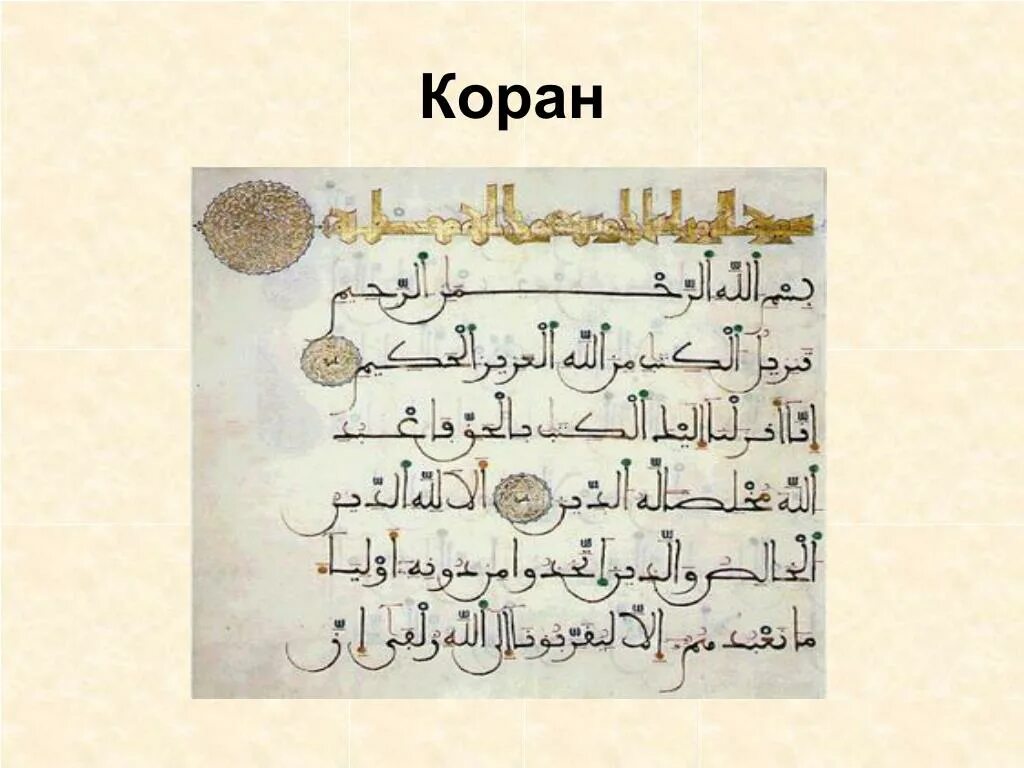 Коран
بسم الله الرحمن الرحيم
تنزيل الكتب من الله العزيز الحكيم
إنا أنزلنا إليك الكتب بالحق فاعبد
الله مخلصا له الدين ألا لله الدين
الخالص والذين اتخذوا من دونه أولياء
ما نعبدهم إلا ليقربونا إلى الله زلفى إن